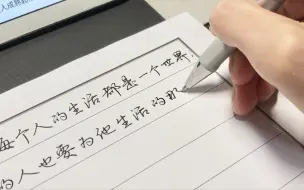 人成熟起
每个人的生活都是一个世界,
的人也要为他生活的那